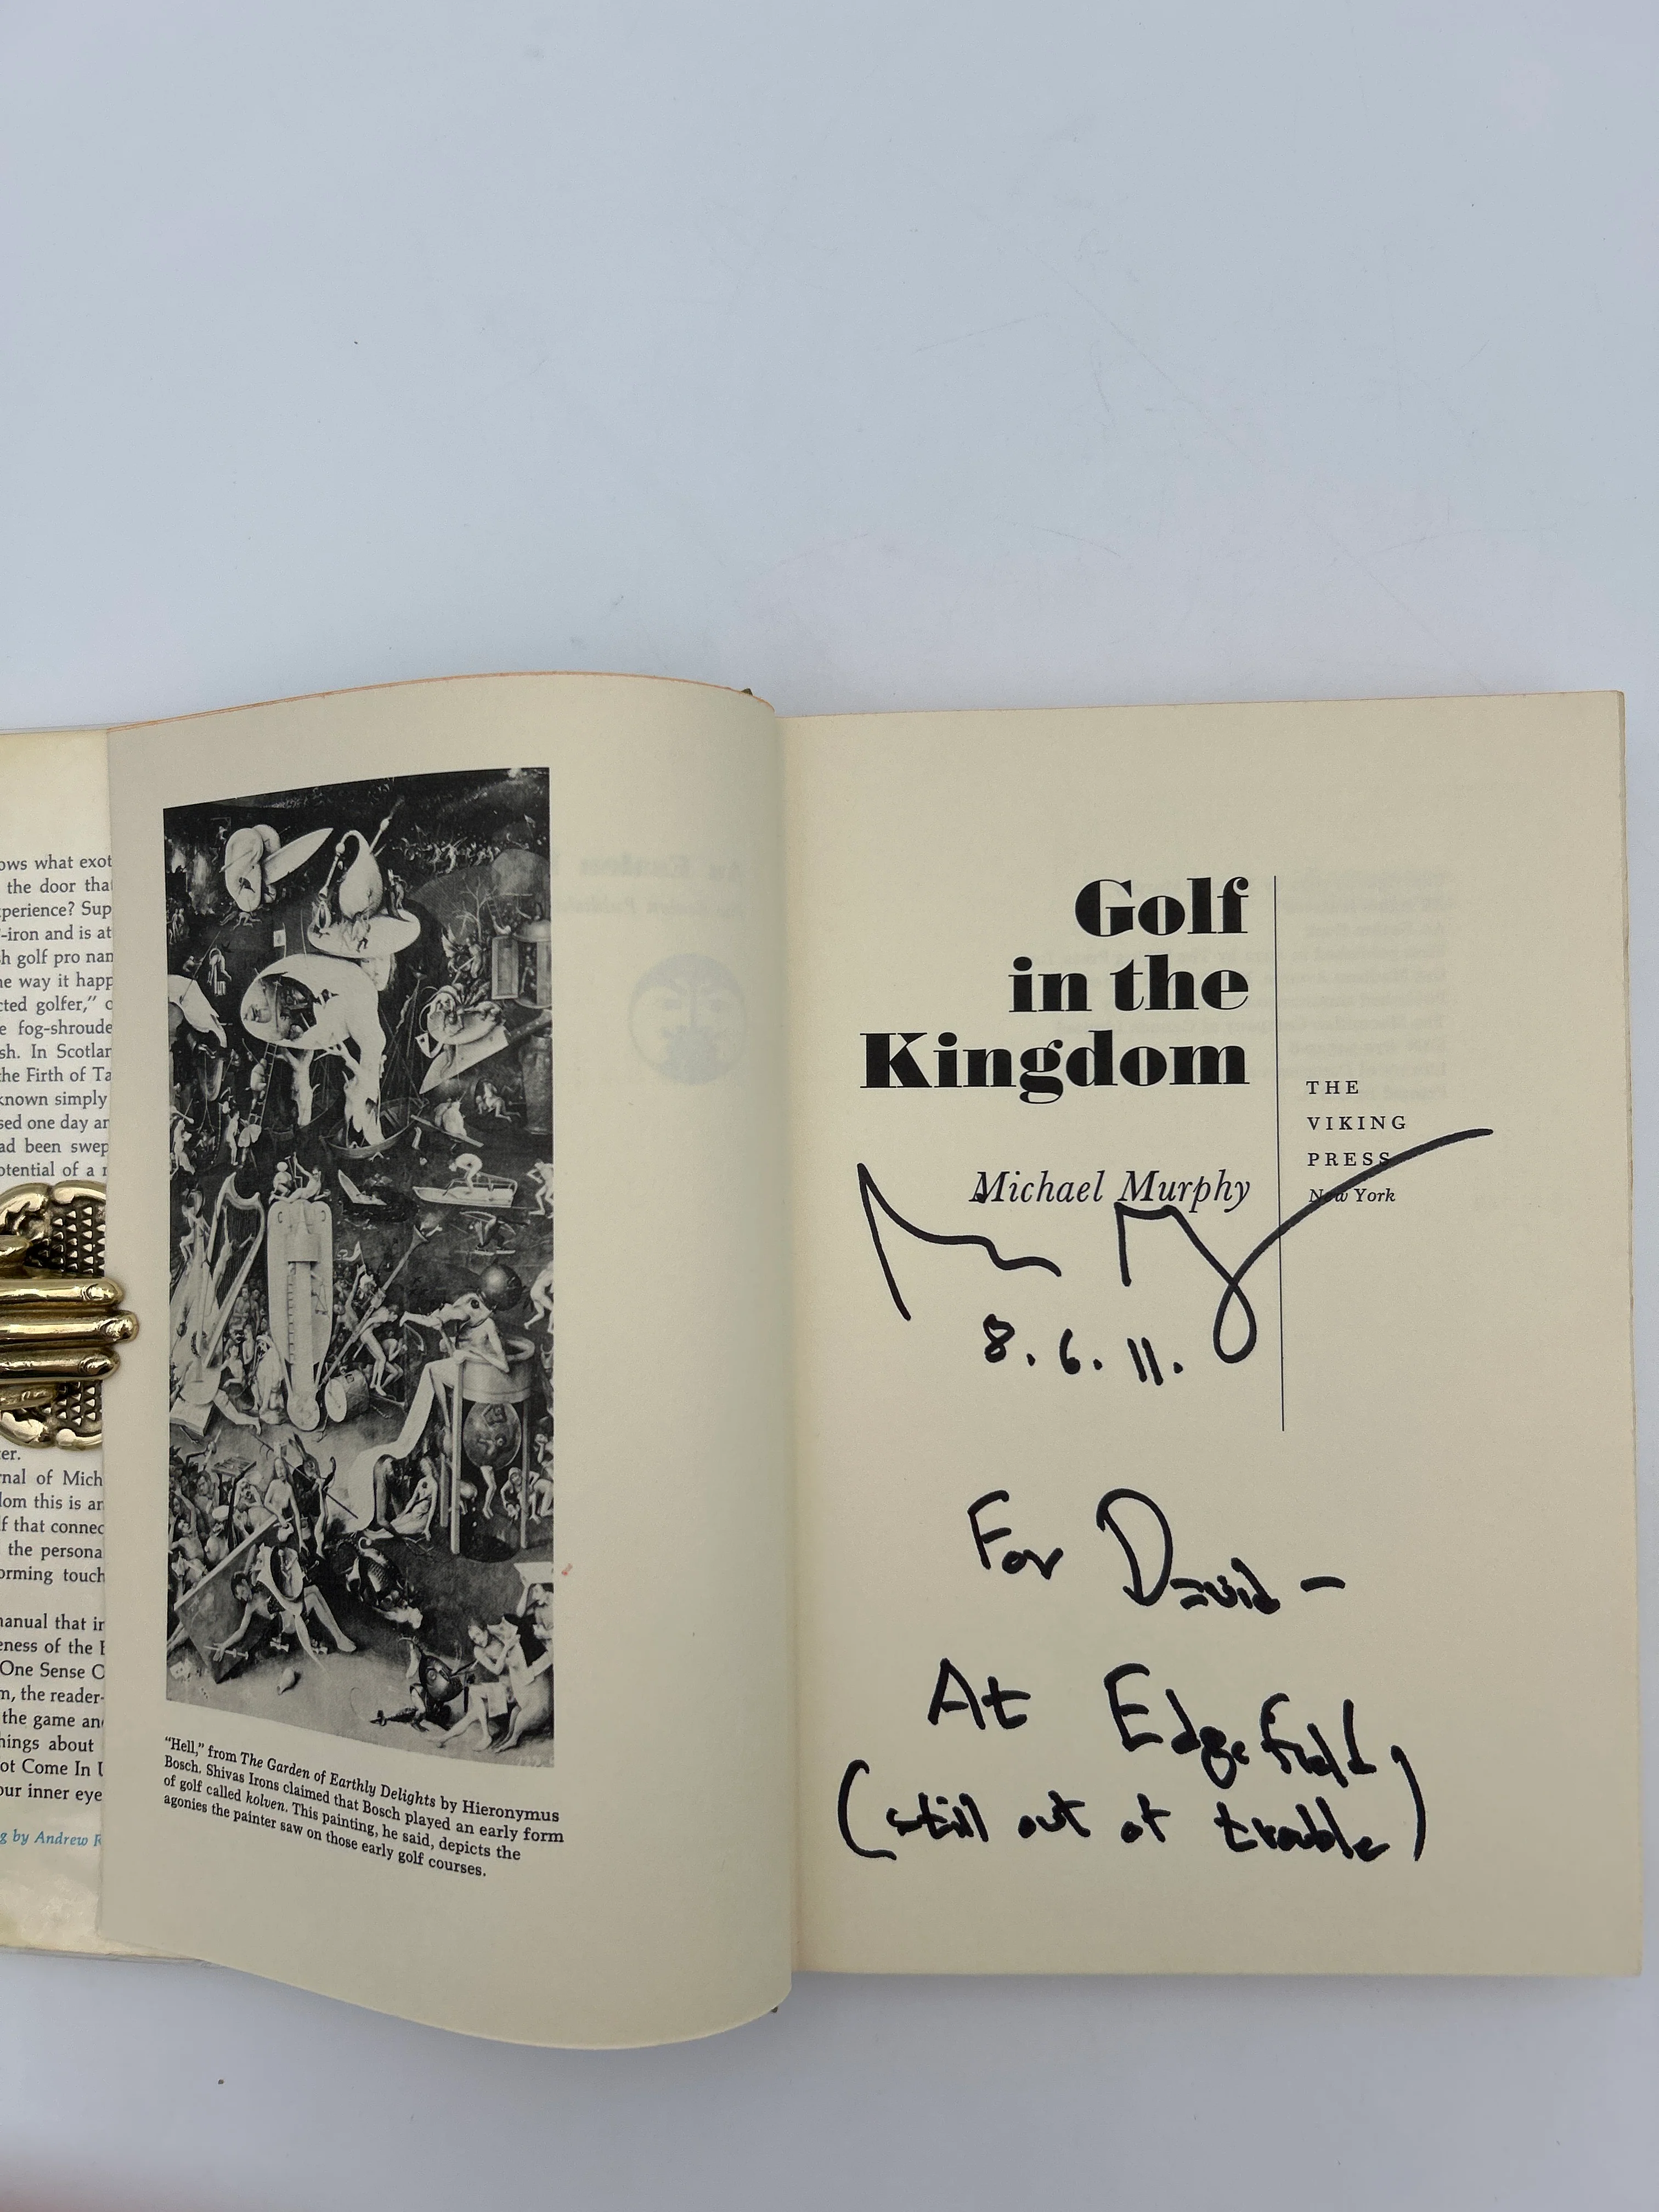 ows what exot
the door tha
xperience? Sup
-iron and is at
sh golf pro nam
he way it happ
cted golfer," o
e fog-shroude
sh. In Scotlan
the Firth of Ta
known simply
sed one day an
ad been swep
otential of a r
ter.
rnal of Mich
dom this is an
lf that connec
the persona
orming touch
manual that in
eness of the E
One Sense O
m, the reader-
the game and
hings about
ot Come In U
our inner eye
g by Andrew R
"Hell," from The Garden of Earthly Delights by Hieronymus
Bosch. Shivas Irons claimed that Bosch played an early form
of golf called kolven. This painting, he said, depicts the
agonies the painter saw on those early golf courses.
Golf
in the
Kingdom
Michael Murphy
THE
VIKING
PRESS
New York
8.6.11.
For David —
At Edgefield
(still out of trouble)